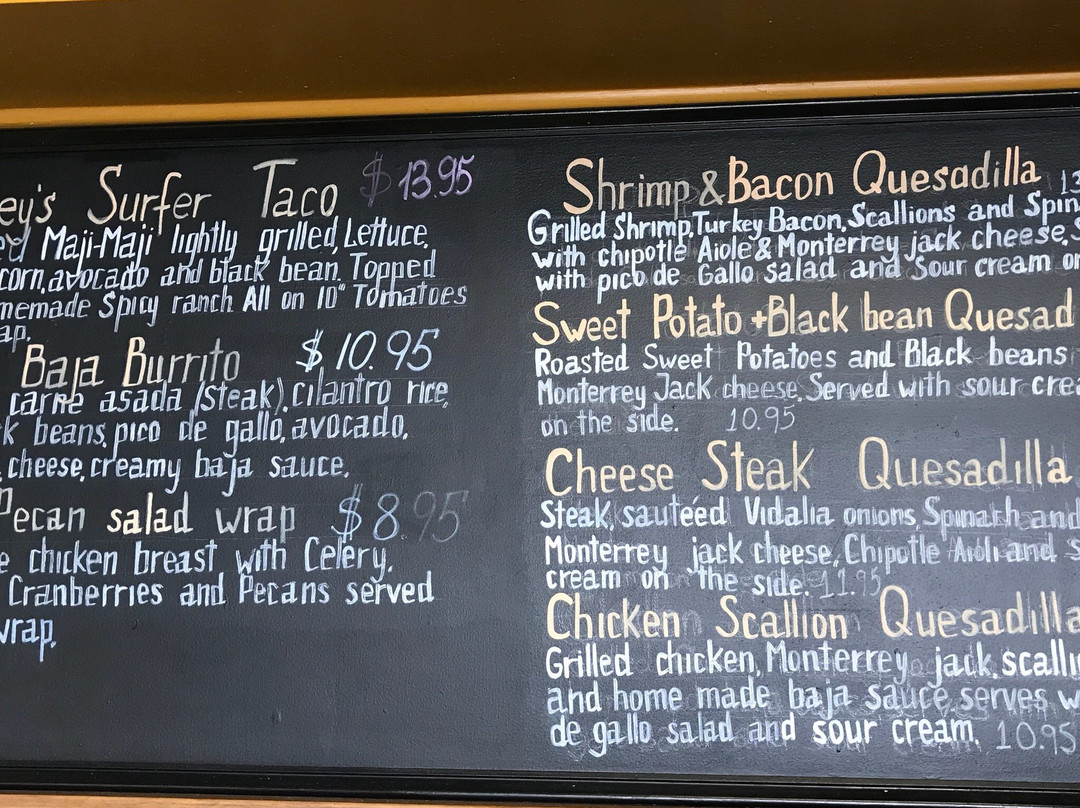 ey's Surfer Taco $13.95
ed Maji-Maji lightly grilled, Lettuce,
corn, avocado and black bean. Topped
memade Spicy ranch All on 10" Tomatoes
ap.
Baja Burrito $10.95
carne asada (steak), cilantro rice,
k beans, pico de gallo, avocado,
cheese, creamy baja sauce.
Pecan salad wrap $8.95
e chicken breast with Celery,
Cranberries and Pecans served
wrap.
Shrimp & Bacon Quesadilla 13
Grilled Shrimp, Turkey Bacon, Scallions and Spin
with chipotle Aiole & Monterrey jack cheese, S
with pico de Gallo salad and Sour cream on
Sweet Potato + Black bean Quesad
Roasted Sweet Potatoes and Black beans
Monterrey Jack cheese. Served with sour crea
on the side. 10.95
Cheese Steak Quesadilla
Steak, sautéed Vidalia onions, Spinach and
Monterrey jack cheese, Chipotle Aioli and S
cream on the side. 11.95
Chicken Scallion Quesadilla
Grilled chicken, Monterrey jack, scalli
and home made baja sauce, serves w
de gallo salad and sour cream. 10.95